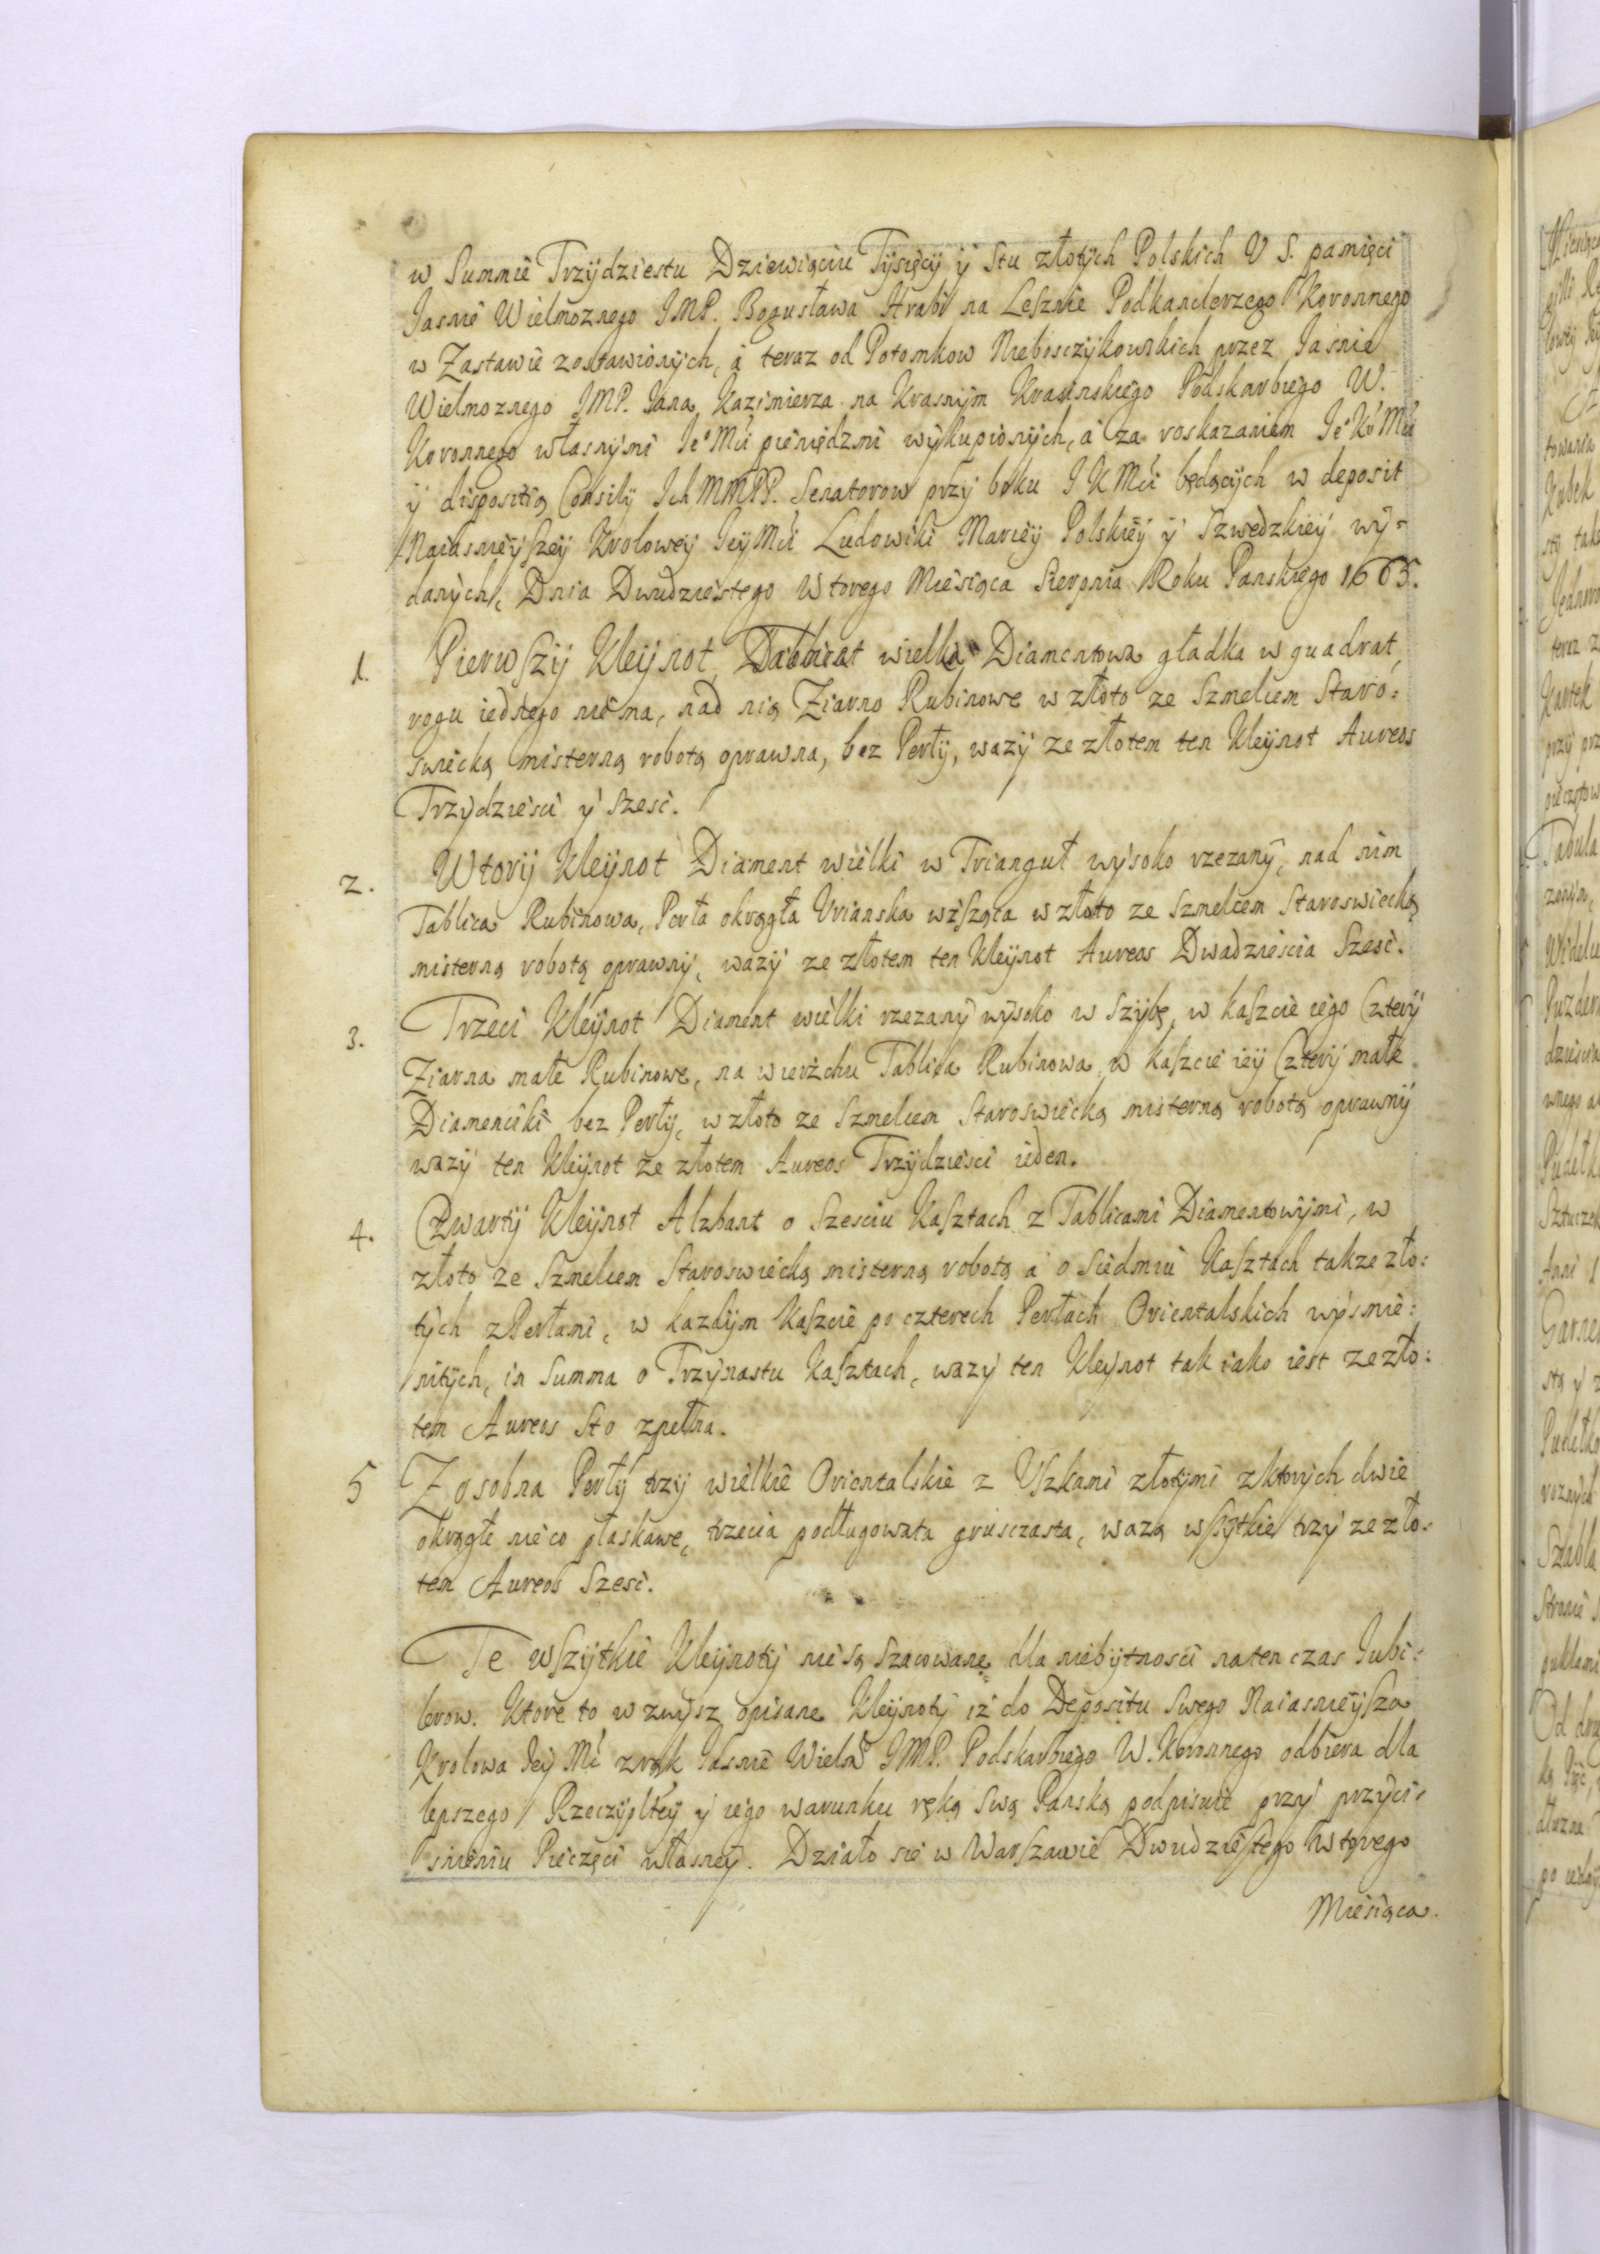 w Summie Trzydziestu Dziewiąciu Tysięcy y Stu złotych Polskich V S. pamięci
Jasnie Wielmoznego JMP. Bogusława Hrabi na Lesznie Podkanclerzego Koronnego
w Zastawie zostawionych, a teraz od Potomkow Nieboszczykowskich przez Jasnie
Wielmoznego JMP. Jana Kazimierza na Krasnym Krasinskiego Podskarbiego W.
Koronnego własnymi Ie° Mći pieniędzmi wykupionych, a za roskazaniem Ie° Kr Mći
y disposicią Consily Ich MMPP. Senatorow przy boku J K Mći będących w deposit
Naiasnieyszey Krolowey Iey Mći Ludowiki Mariey Polskiey y Szwedzkiey wy=
danych, Dnia Dwudziestego Wtorego Miesiąca Sierpnia Roku Panskiego 1665.
1. Pierwszy Kleynot, wielka Diamentowa gładka w quadrat,
rogu iednego nie ma, nad nią Ziarno Rubinowe w złoto ze Szmelcem Staro:
swiecką misterną robotą oprawna, bez Perły, wazy ze złotem ten Kleynot Aureos
Trzydziesci y Szesc.
2. Wtory Kleynot Diament wielki w Trianguł wysoko rzezany, nad nim
Tablica Rubinowa, Perła okrągła Urianska wisząca w złoto ze Szmelcem Staroswiecką
misterną robotą oprawny, wazy ze złotem ten Kleynot Aureos Dwadziescia Szesc.
3. Trzeci Kleynot Diament wielki rzezany wysoko w Szybę, w kaszcie iego Cztery
Ziarna małe Rubinowe, na wierzchu Tablica Rubinowa w kaszcie iey Cztery małe
Diamenciki bez Perły, w złoto ze Szmelcem Staroswiecką misterną robotą oprawny
wazy ten Kleynot ze złotem Aureos Trzydziesci ieden.
4. Czwarty Kleynot Alzbant o Szesciu Kasztach z Tablicami Diamentowymi, w
złoto ze Szmelcem Staroswiecką misterną robotą a o Siedmiu Kasztach takze zło:
tych z Perłami, w kazdym Kaszcie po czterech Perłach Orientalskich wysmie:
nitych, in Summa o Trzynastu Kasztach, wazy ten Kleynot tak iako iest ze zło:
tem Aureos Sto zpełna.
5 Z osobna Perły trzy wielkie Orientalskie z Uszkami złotymi z ktorych dwie
okrągłe nieco płaskawe, trzecia podługowata grusczasta, wazą wszytkie trzy ze zło:
tem Aureos Szesc.
Te wszytkie Kleynoty nie są szacowane dla niebytnosci na ten czas Jubi:
lerow. Ktore to wzwysz opisane Kleynoty iż do Depositu Swego Naiasnieysza
Krolowa Iey Mć z rąk Jasnie Wielm JMP. Podskarbiego W. Koronnego odbiera dla
lepszego Rzeczypltey y iego warunku ręką swą Panską podpisuie przy przyci=
snieniu Pieczęci własney. Działo sie w Warszawie Dwudziestego Wtorego
Miesiąca.